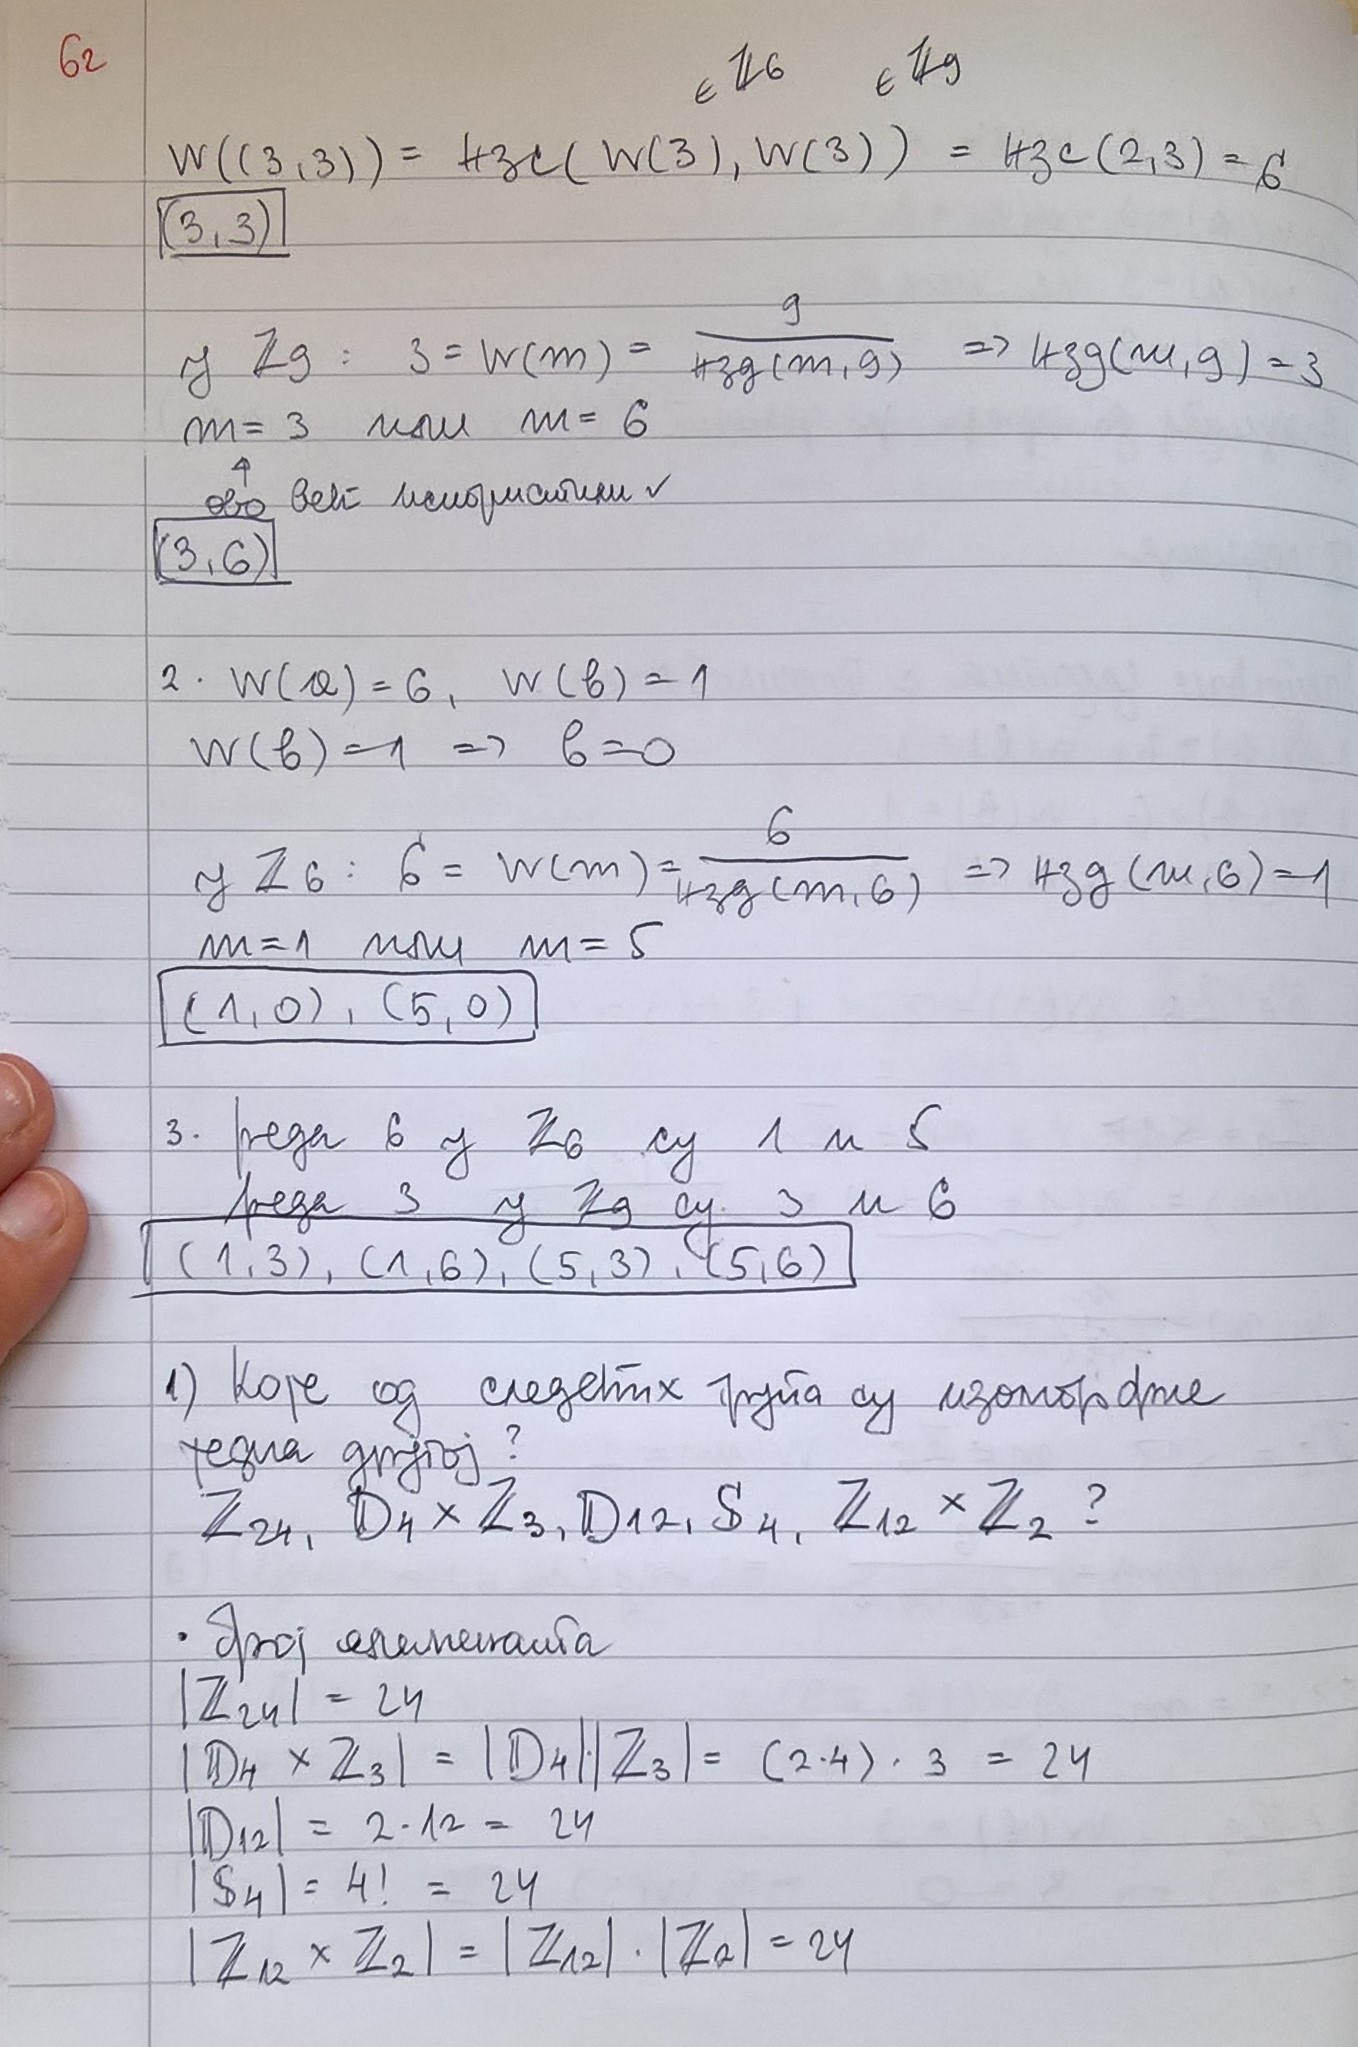 62
∈ ℤ6 ∈ ℤ9
W((3,3)) = НЗС(W(3), W(3)) = НЗС(2,3) = 6
(3,3)
у ℤ9 : 3 = W(m) = 9/НЗД(m,9) => НЗД(m,9) = 3
m = 3 или m = 6
↑
ово већ испитали ✓
(3,6)
2. W(a) = 6, W(b) = 1
W(b) = 1 => b = 0
у ℤ6 : 6 = W(m) = 6/НЗД(m,6) => НЗД(m,6) = 1
m = 1 или m = 5
(1,0), (5,0)
3. реда 6 у ℤ6 су 1 и 5
реда 3 у ℤ9 су 3 и 6
(1,3), (1,6), (5,3), (5,6)
1) Које од следећих група су изоморфне
једна другој?
ℤ24, 𝔻4 × ℤ3, 𝔻12, 𝕊4, ℤ12 × ℤ2 ?
• број елемената
|ℤ24| = 24
|𝔻4 × ℤ3| = |𝔻4|·|ℤ3| = (2·4)·3 = 24
|𝔻12| = 2·12 = 24
|𝕊4| = 4! = 24
|ℤ12 × ℤ2| = |ℤ12|·|ℤ2| = 24